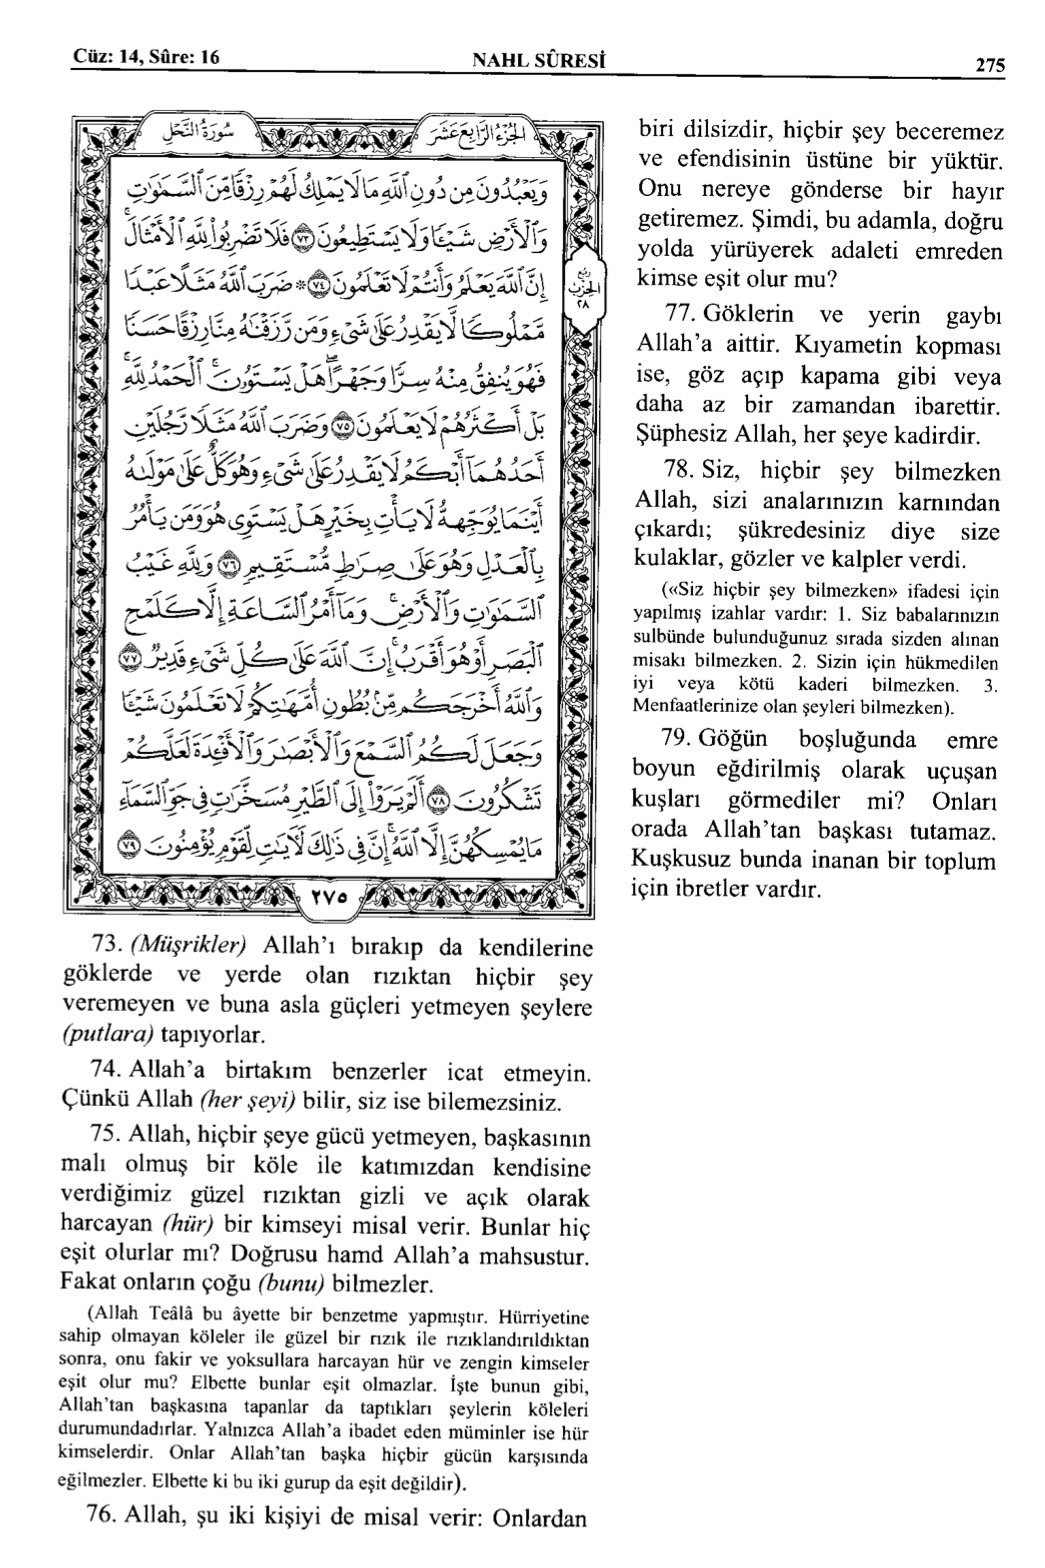 Cüz: 14, Sûre: 16
NAHL SÛRESİ
275
سُورَةُ النَّحْلِ
الجُزْءُ الرَّابِعَ عَشَرَ
وَيَعْبُدُونَ مِن دُونِ ٱللَّهِ مَا لَا يَمْلِكُ لَهُمْ رِزْقًا مِّنَ ٱلسَّمَٰوَٰتِ
وَٱلْأَرْضِ شَيْـًٔا وَلَا يَسْتَطِيعُونَ ٧٣ فَلَا تَضْرِبُوا۟ لِلَّهِ ٱلْأَمْثَالَ ۚ
إِنَّ ٱللَّهَ يَعْلَمُ وَأَنتُمْ لَا تَعْلَمُونَ ٧٤ * ضَرَبَ ٱللَّهُ مَثَلًا عَبْدًا
مَّمْلُوكًا لَّا يَقْدِرُ عَلَىٰ شَىْءٍ وَمَن رَّزَقْنَٰهُ مِنَّا رِزْقًا حَسَنًا
فَهُوَ يُنفِقُ مِنْهُ سِرًّا وَجَهْرًا ۖ هَلْ يَسْتَوُۥنَ ۚ ٱلْحَمْدُ لِلَّهِ ۚ
بَلْ أَكْثَرُهُمْ لَا يَعْلَمُونَ ٧٥ وَضَرَبَ ٱللَّهُ مَثَلًا رَّجُلَيْنِ
أَحَدُهُمَآ أَبْكَمُ لَا يَقْدِرُ عَلَىٰ شَىْءٍ وَهُوَ كَلٌّ عَلَىٰ مَوْلَىٰهُ
أَيْنَمَا يُوَجِّههُّ لَا يَأْتِ بِخَيْرٍ هَلْ يَسْتَوِى هُوَ وَمَن يَأْمُرُ
بِٱلْعَدْلِ وَهُوَ عَلَىٰ صِرَٰطٍ مُّسْتَقِيمٍ ٧٦ وَلِلَّهِ غَيْبُ
ٱلسَّمَٰوَٰتِ وَٱلْأَرْضِ ۚ وَمَآ أَمْرُ ٱلسَّاعَةِ إِلَّا كَلَمْحِ
ٱلْبَصَرِ أَوْ هُوَ أَقْرَبُ ۚ إِنَّ ٱللَّهَ عَلَىٰ كُلِّ شَىْءٍ قَدِيرٌ ٧٧
وَٱللَّهُ أَخْرَجَكُم مِّنۢ بُطُونِ أُمَّهَٰتِكُمْ لَا تَعْلَمُونَ شَيْـًٔا
وَجَعَلَ لَكُمُ ٱلسَّمْعَ وَٱلْأَبْصَٰرَ وَٱلْأَفْـِٔدَةَ لَعَلَّكُمْ
تَشْكُرُونَ ٧٨ أَلَمْ يَرَوْا۟ إِلَى ٱلطَّيْرِ مُسَخَّرَٰتٍ فِى جَوِّ ٱلسَّمَآءِ
مَا يُمْسِكُهُنَّ إِلَّا ٱللَّهُ ۗ إِنَّ فِى ذَٰلِكَ لَءَايَٰتٍ لِّقَوْمٍ يُؤْمِنُونَ ٧٩
ربع
الحزب
٢٨
٢٧٥
73. (Müşrikler) Allah’ı bırakıp da kendilerine
göklerde ve yerde olan rızıktan hiçbir şey
veremeyen ve buna asla güçleri yetmeyen şeylere
(putlara) tapıyorlar.
74. Allah’a birtakım benzerler icat etmeyin.
Çünkü Allah (her şeyi) bilir, siz ise bilemezsiniz.
75. Allah, hiçbir şeye gücü yetmeyen, başkasının
malı olmuş bir köle ile katımızdan kendisine
verdiğimiz güzel rızıktan gizli ve açık olarak
harcayan (hür) bir kimseyi misal verir. Bunlar hiç
eşit olurlar mı? Doğrusu hamd Allah’a mahsustur.
Fakat onların çoğu (bunu) bilmezler.
(Allah Teâlâ bu âyette bir benzetme yapmıştır. Hürriyetine
sahip olmayan köleler ile güzel bir rızık ile rızıklandırıldıktan
sonra, onu fakir ve yoksullara harcayan hür ve zengin kimseler
eşit olur mu? Elbette bunlar eşit olmazlar. İşte bunun gibi,
Allah’tan başkasına tapanlar da taptıkları şeylerin köleleri
durumundadırlar. Yalnızca Allah’a ibadet eden müminler ise hür
kimselerdir. Onlar Allah’tan başka hiçbir gücün karşısında
eğilmezler. Elbette ki bu iki gurup da eşit değildir).
76. Allah, şu iki kişiyi de misal verir: Onlardan
biri dilsizdir, hiçbir şey beceremez
ve efendisinin üstüne bir yüktür.
Onu nereye gönderse bir hayır
getiremez. Şimdi, bu adamla, doğru
yolda yürüyerek adaleti emreden
kimse eşit olur mu?
77. Göklerin ve yerin gaybı
Allah’a aittir. Kıyametin kopması
ise, göz açıp kapama gibi veya
daha az bir zamandan ibarettir.
Şüphesiz Allah, her şeye kadirdir.
78. Siz, hiçbir şey bilmezken
Allah, sizi analarınızın karnından
çıkardı; şükredesiniz diye size
kulaklar, gözler ve kalpler verdi.
(«Siz hiçbir şey bilmezken» ifadesi için
yapılmış izahlar vardır: 1. Siz babalarınızın
sulbünde bulunduğunuz sırada sizden alınan
misakı bilmezken. 2. Sizin için hükmedilen
iyi veya kötü kaderi bilmezken. 3.
Menfaatlerinize olan şeyleri bilmezken).
79. Göğün boşluğunda emre
boyun eğdirilmiş olarak uçuşan
kuşları görmediler mi? Onları
orada Allah’tan başkası tutamaz.
Kuşkusuz bunda inanan bir toplum
için ibretler vardır.